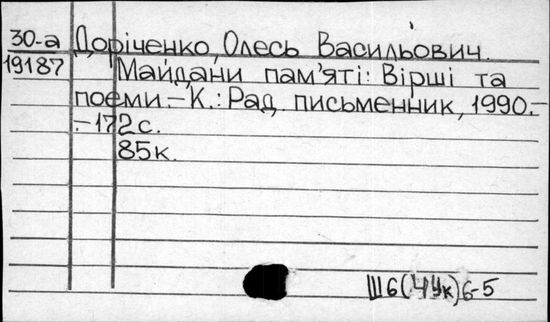 30-а Доріченко, Олесь Васильович.
19187 Майдани пам'яті: Вірші та
поеми.– К.: Рад. письменник, 1990.–
– 172 с.
85к.
Ш6(4Ук)6-5